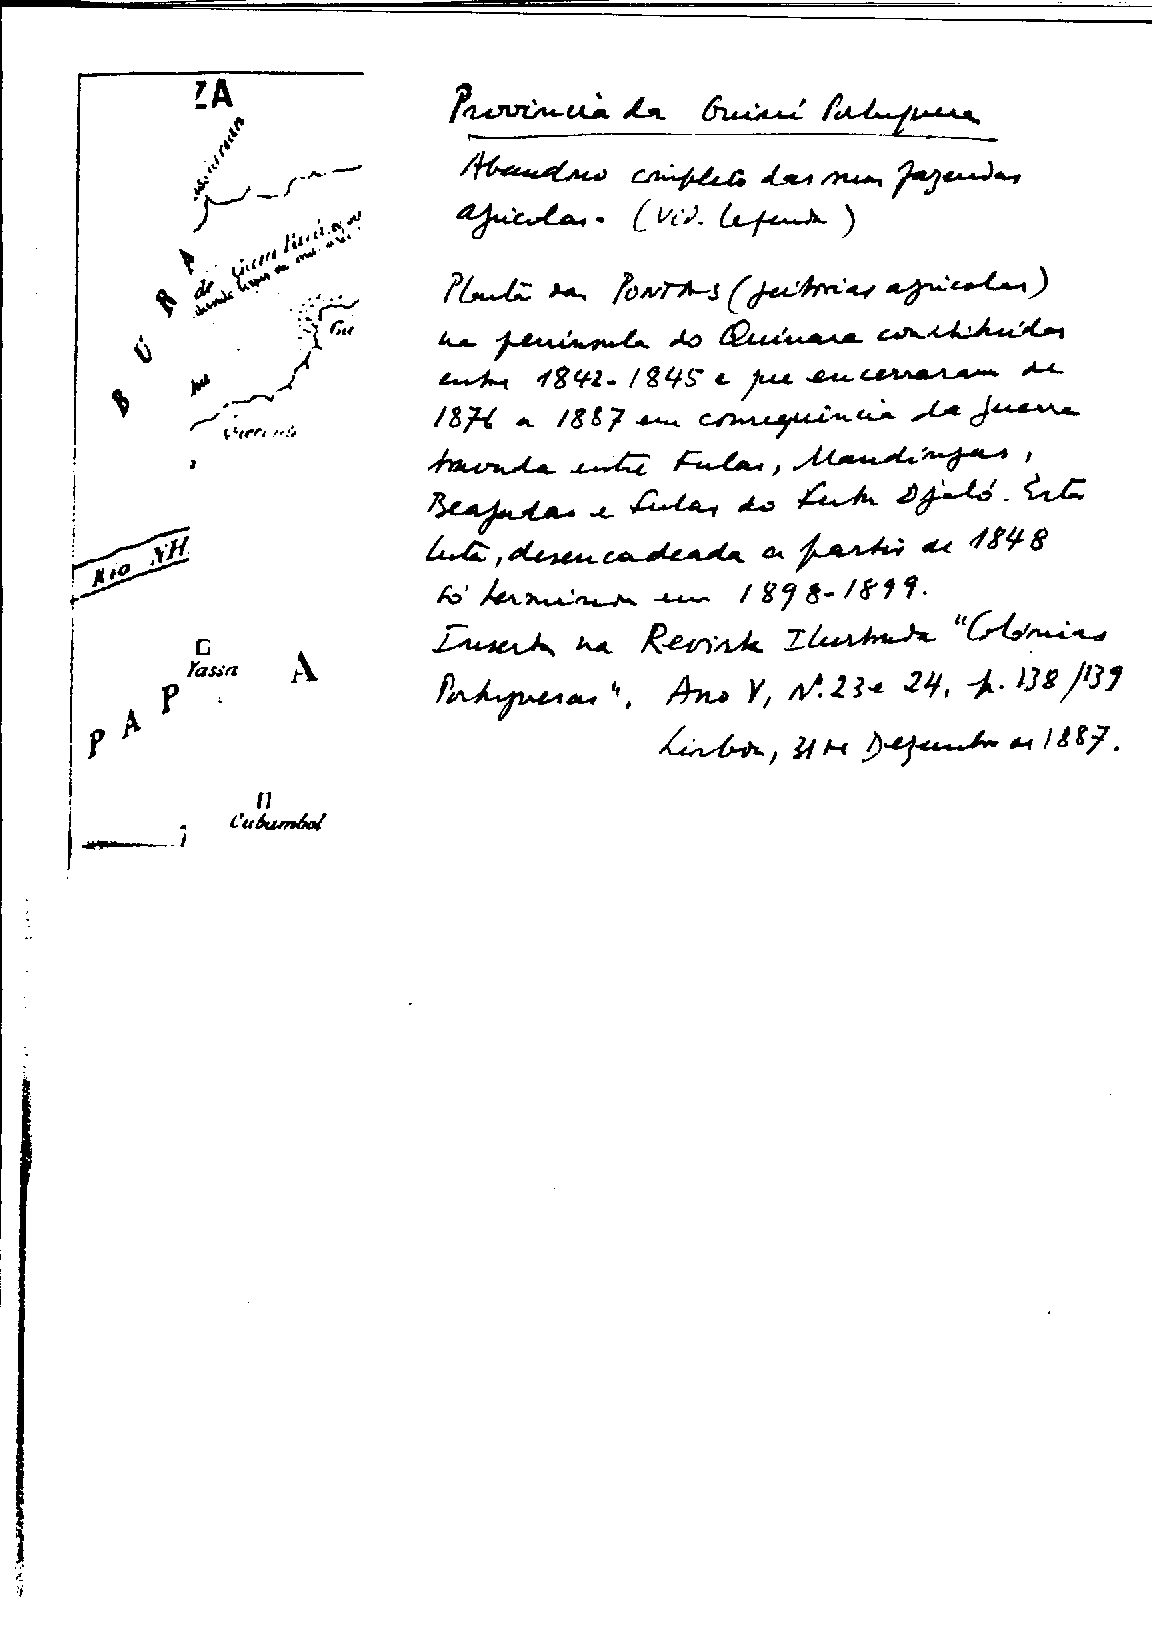 ZA
BURA
de
Rio NH
Yassa
PAPA
Cubumbol
Provincia da Guiné Portuguesa
Abandono completo das suas fazendas
agricolas. (Vid. legenda)
Planta das PONTAS (feitorias agricolas)
na peninsula do Quinara constituidas
entre 1842-1845 e que encerraram de
1876 a 1887 em consequência da guerra
travada entre Fulas, Mandingas,
Beafadas e Fulas do Futa Djaló. Esta
luta, desencadeada a partir de 1848
só terminou em 1898-1899.
Inserta na Revista Ilustrada "Colónias
Portuguesas", Ano V, Nº. 23 e 24, p. 138/139
Lisboa, 31 de Dezembro de 1887.